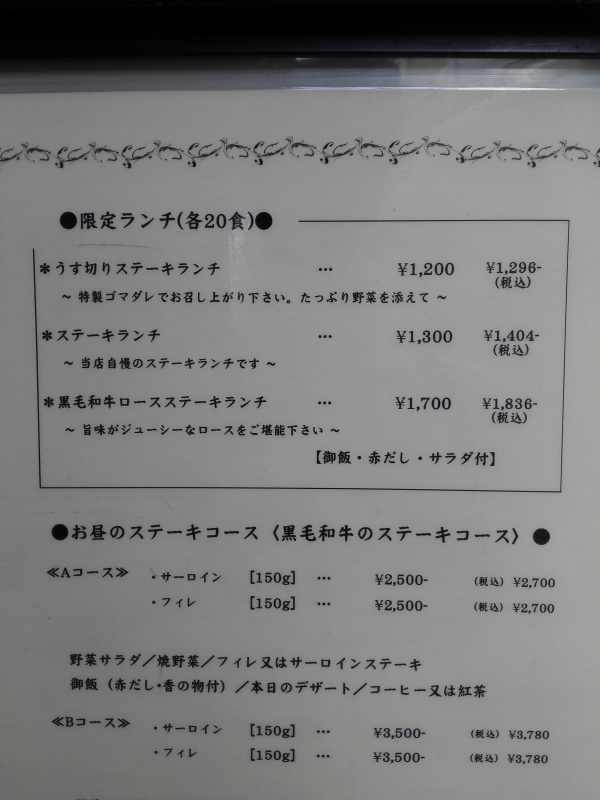 ●限定ランチ(各20食)●
＊うす切りステーキランチ … ¥1,200 ¥1,296-
(税込)
～ 特製ゴマダレでお召し上がり下さい。たっぷり野菜を添えて ～
＊ステーキランチ … ¥1,300 ¥1,404-
(税込)
～ 当店自慢のステーキランチです ～
＊黒毛和牛ロースステーキランチ … ¥1,700 ¥1,836-
(税込)
～ 旨味がジューシーなロースをご堪能下さい ～
【御飯・赤だし・サラダ付】
●お昼のステーキコース〈黒毛和牛のステーキコース〉●
≪Aコース≫ ・サーロイン [150g] … ¥2,500- (税込) ¥2,700
・フィレ [150g] … ¥2,500- (税込) ¥2,700
野菜サラダ／焼野菜／フィレ又はサーロインステーキ
御飯（赤だし･香の物付）／本日のデザート／コーヒー又は紅茶
≪Bコース≫ ・サーロイン [150g] … ¥3,500- (税込) ¥3,780
・フィレ [150g] … ¥3,500- (税込) ¥3,780